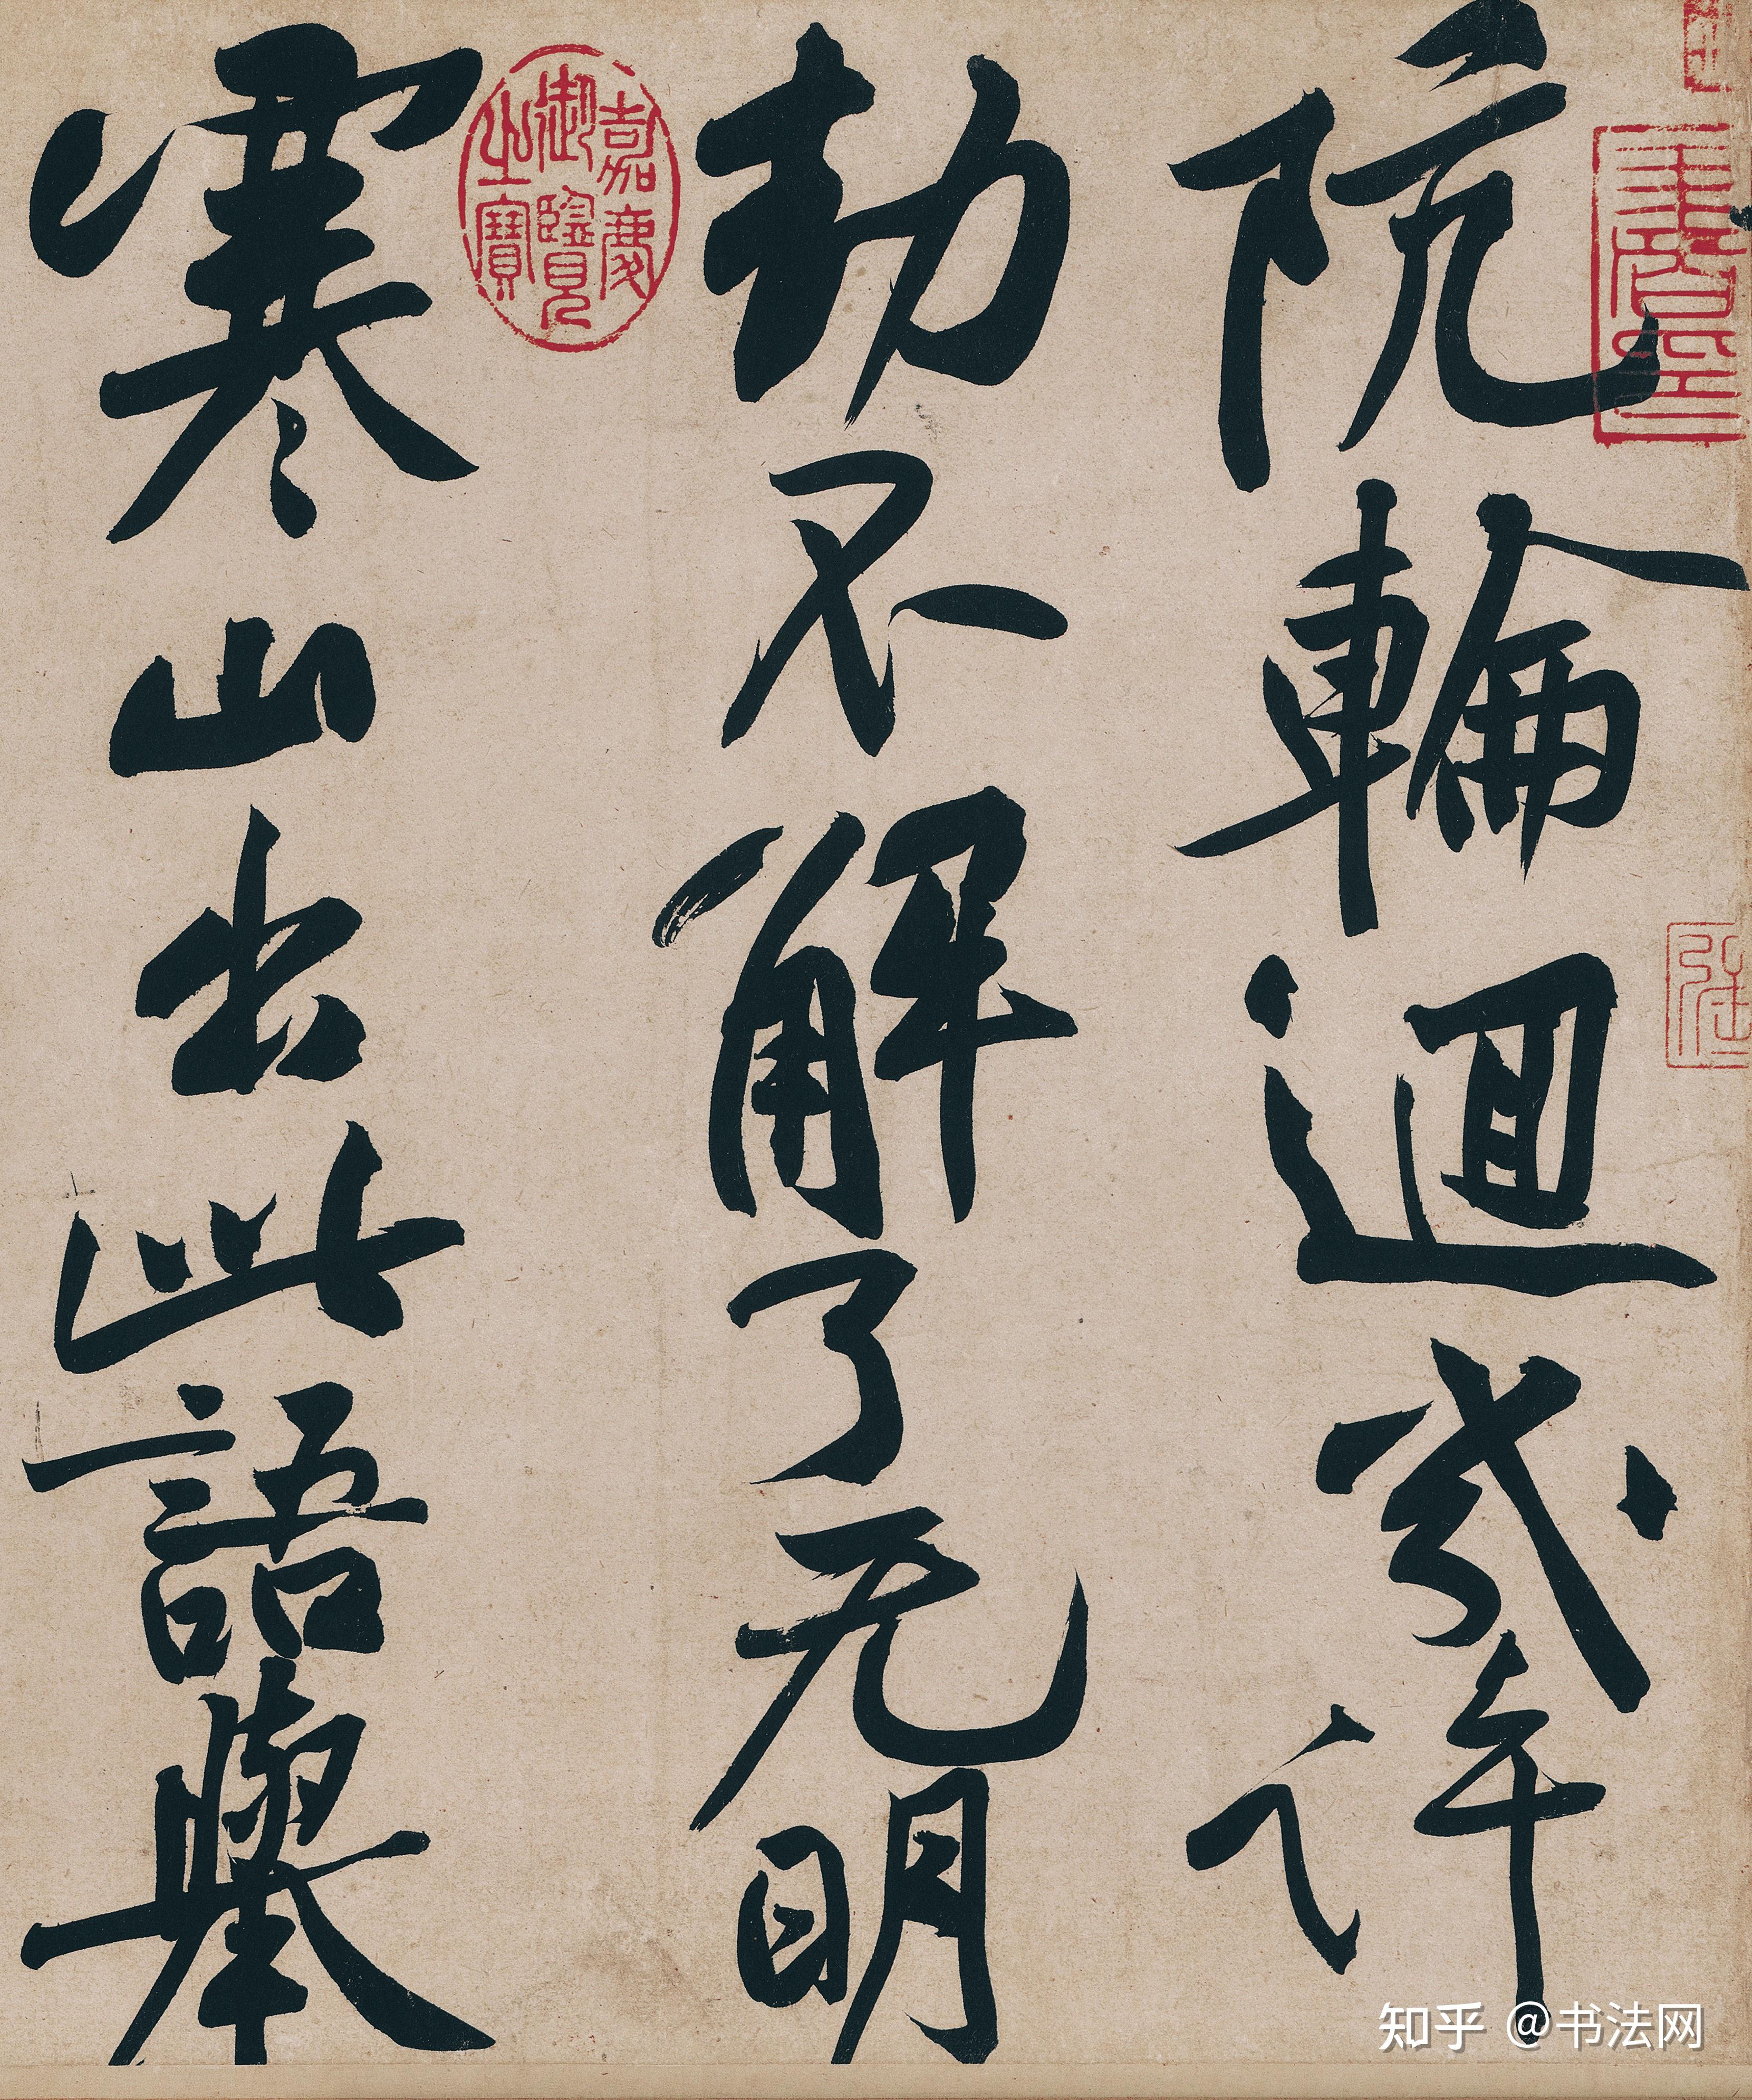 阬輪迴幾許
劫不解了无明
嘉慶御覽之寶
寒山出此語舉
知乎 @书法网